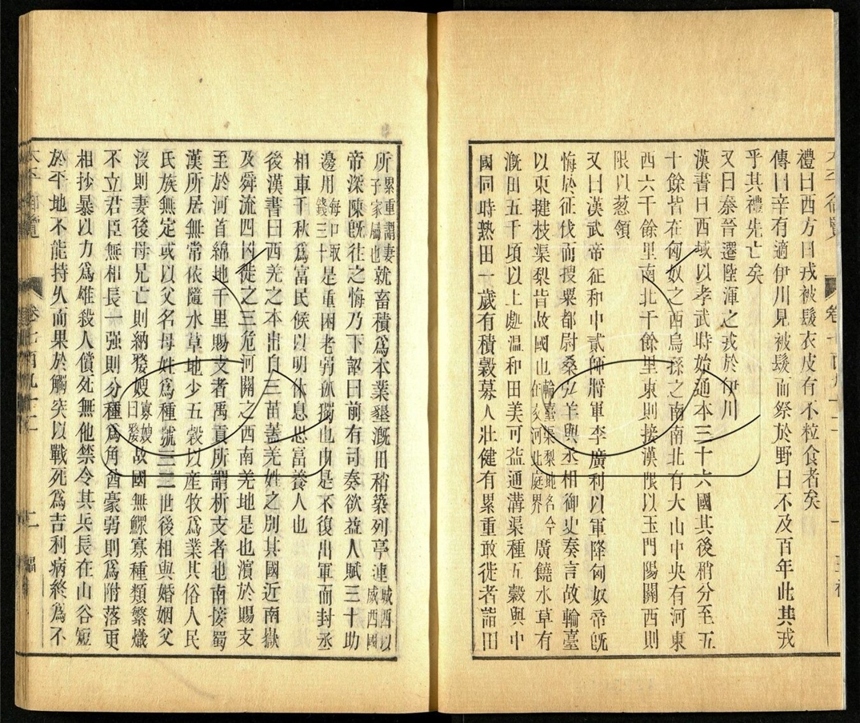 禮曰西方曰戎被髮衣皮有不粒食者矣
傳曰辛有適伊川見被髮而祭於野曰不及百年此其戎
乎其禮先亡矣
又曰秦晉遷陸渾之戎於伊川
漢書曰西域以孝武時始通本三十六國其後稍分至五
十餘皆在匈奴之西烏孫之南南北有大山中央有河東
西六千餘里南北千餘里東則接漢限以玉門陽關西則
限以葱嶺
又曰漢武帝征和中貳師將軍李廣利以軍降匈奴帝旣
悔於征伐而搜粟都尉桑弘羊與丞相御史奏言故輪臺
以東揵枝渠犁皆故國也輪臺渠犁地名今在交河北庭界廣饒水草有
溉田五千頃以上處温和田美可益通溝渠種五穀與中
國同時熟田一歲有積穀募人壯健有累重敢徙者詣田
所累重謂妻子家屬也就畜積爲本業墾溉田稍築列亭連城西以威西國
帝深陳旣往之悔乃下詔曰前有司奏欲益人賦三十助
邊用每口取錢三十是重困老弱孤獨也由是不復出軍而封丞
相車千秋爲富民侯以明休息思富養人也
後漢書曰西羌之本出自三苗蓋羌姓之別其國近南嶽
及舜流四凶徙之三危河關之西南羌地是也濱於賜支
至於河首綿地千里賜支者禹貢所謂析支者也南接蜀
漢所居無常依隨水草地少五穀以産牧爲業其俗人民
氏族無定或以父名母姓爲種號三二世後相與婚姻父
沒則妻後母兄亡則納嫠嫂寡婦曰嫠故國無鰥寡種類繁熾
不立君臣無相長一强則分種爲角酋豪弱則爲附落更
相抄暴以力爲雄殺人償死無他禁令其兵長在山谷短
於平地不能持久而果於觸突以戰死爲吉利病終爲不